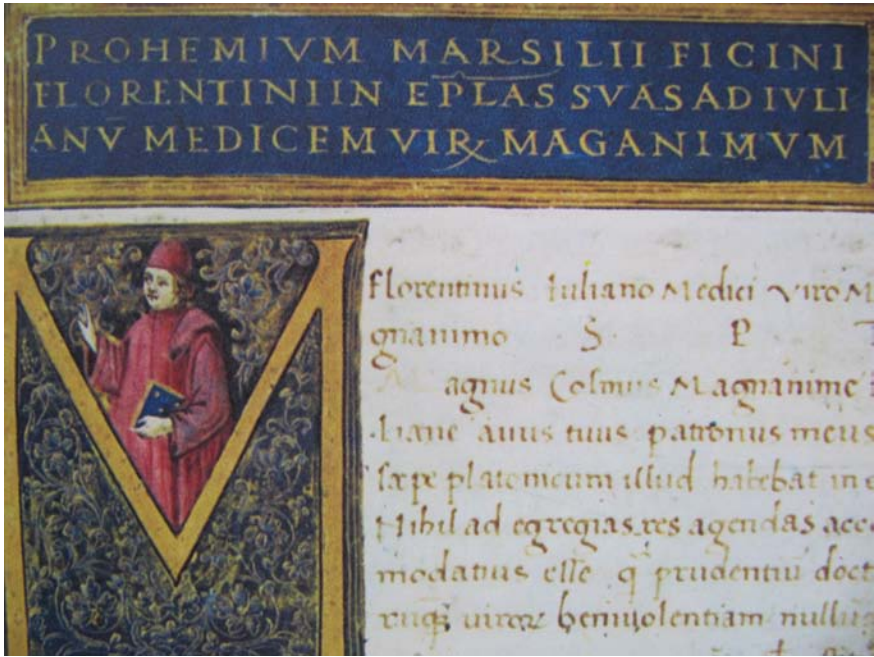 PROHEMIVM MARSILII FICINI
FLORENTINIIN EPLAS SVAS AD IVLI
ANV̄ MEDICEM VIR℞ MAGANIMVM
florentinus Iuliano Medici Viro M
gnanimo S. P
agnus Cosmus Magnanime
liane auus tuus patronus meus
sæpe platonicum illud habebat in
Nihil ad egregias res agendas acco
modatius esse q̄ prudentiū doct
ruq; uiroꝝ beniuolentiam nullu